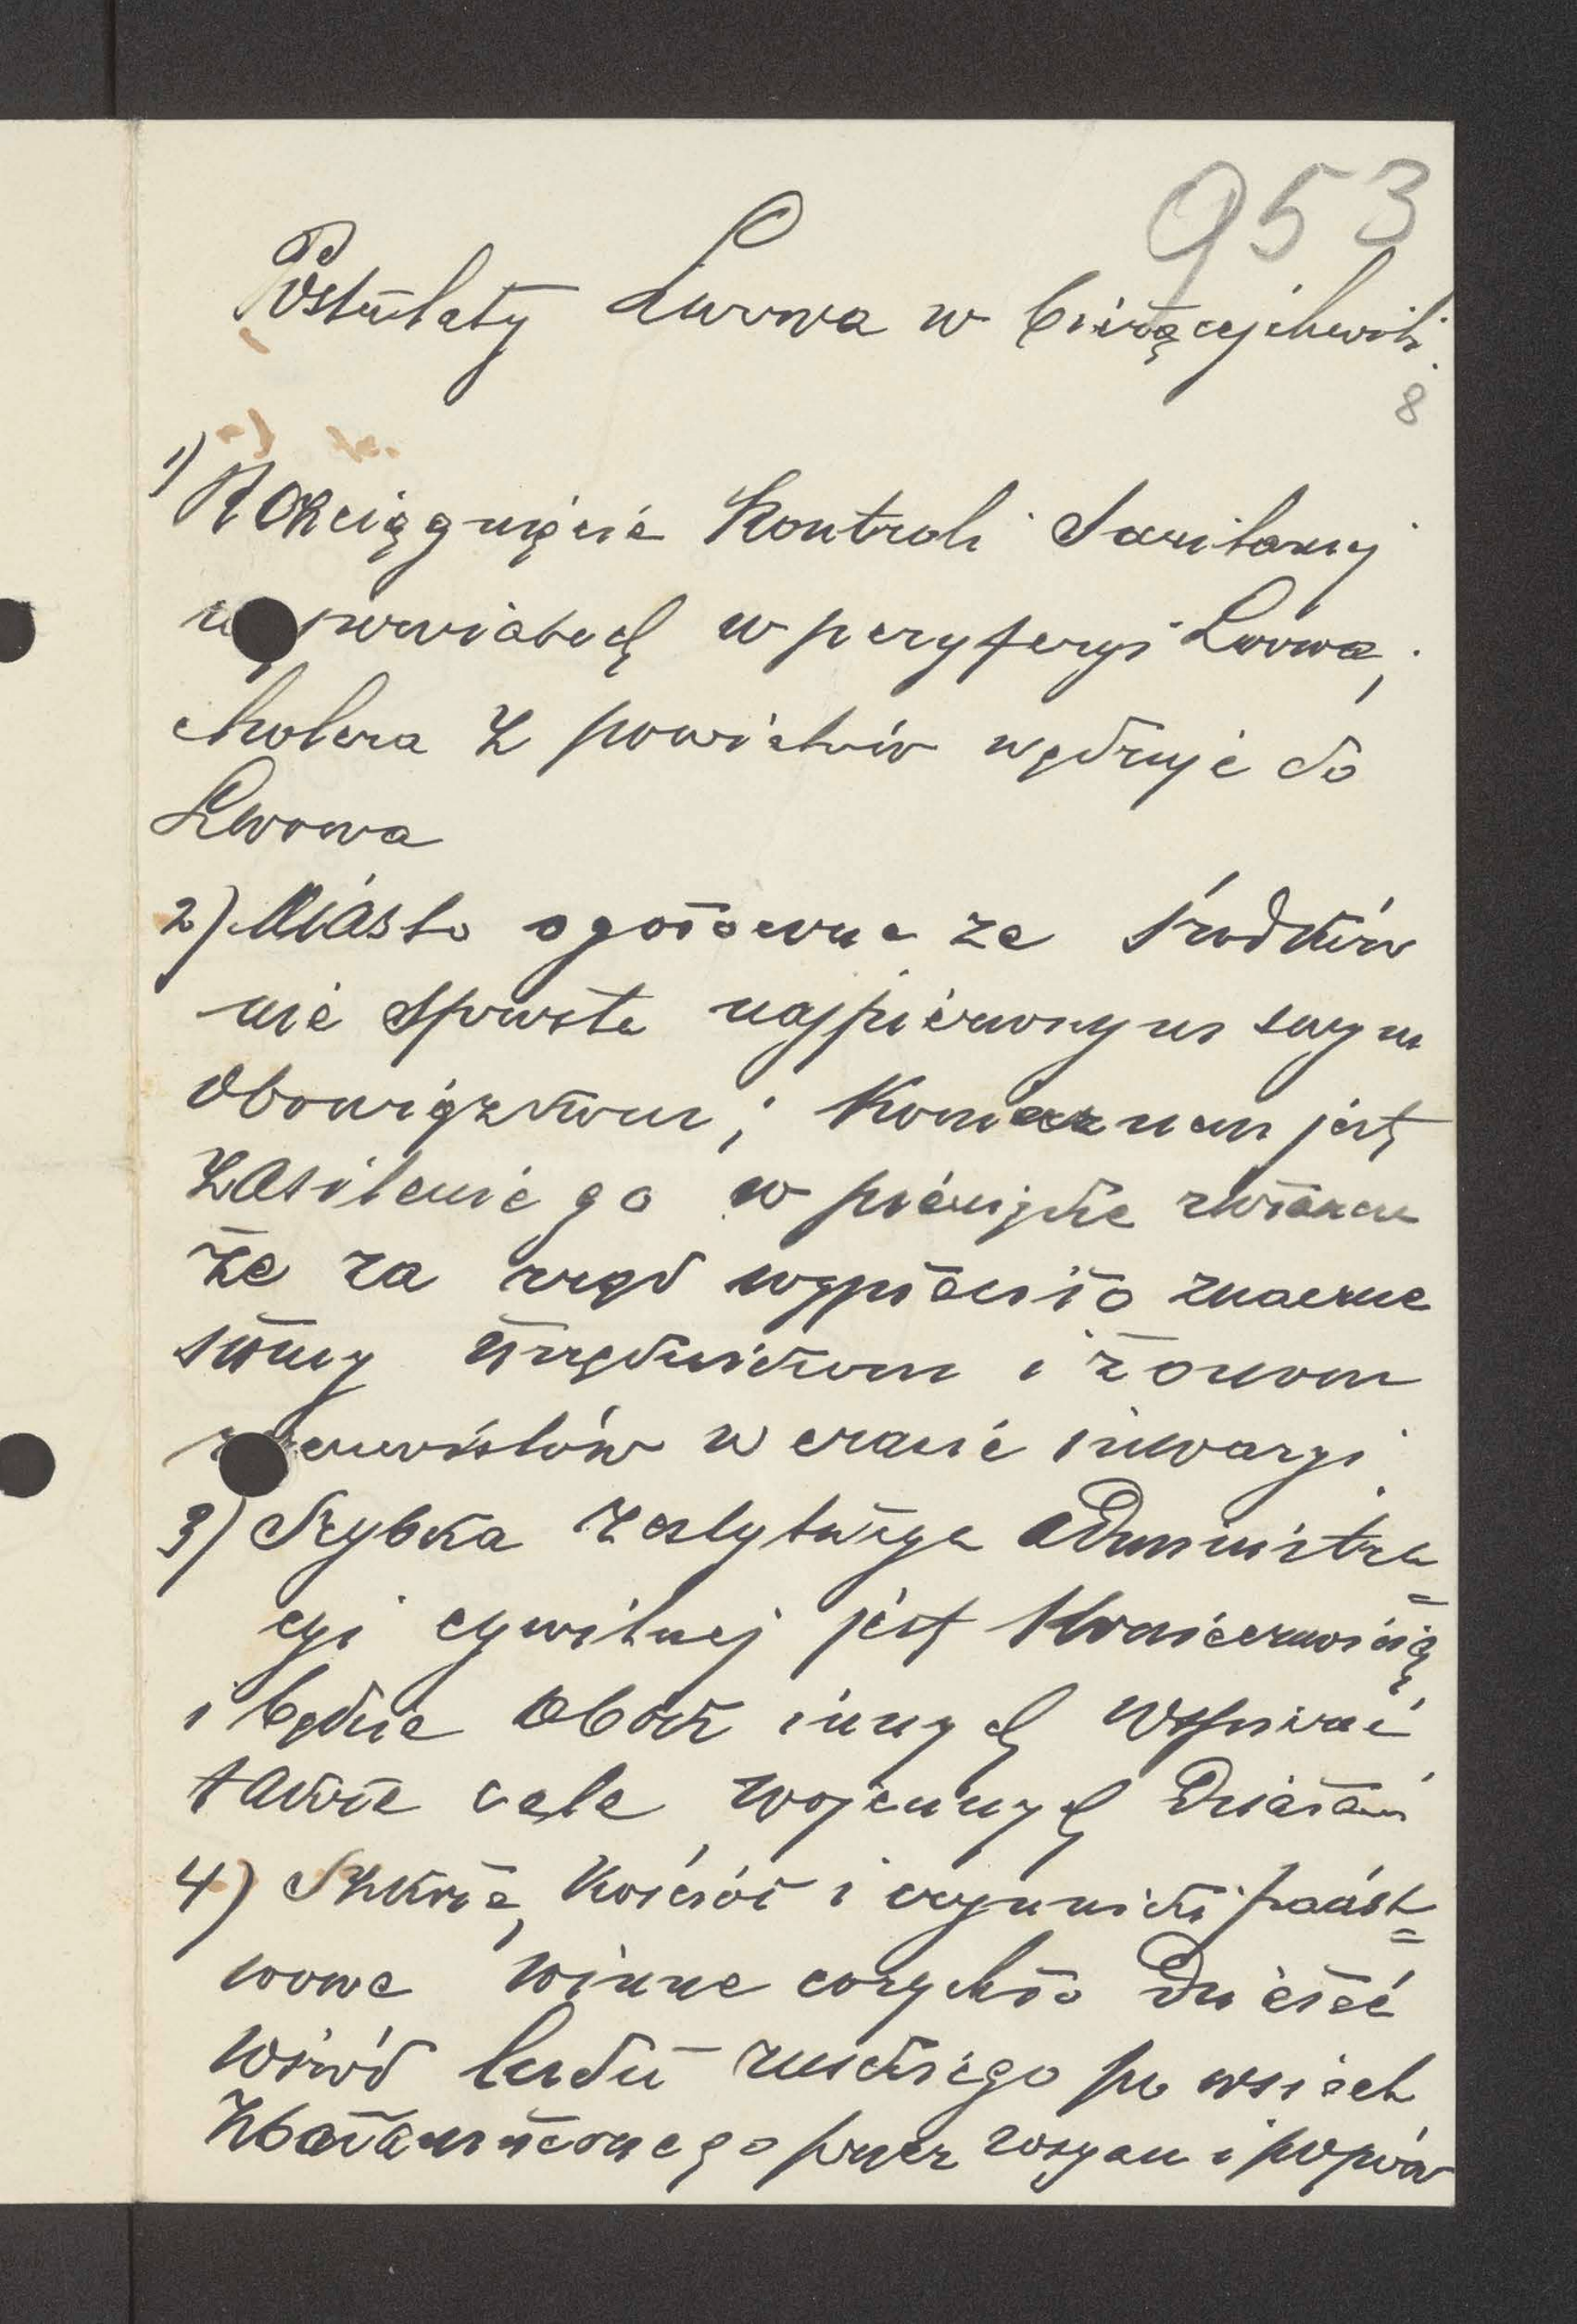 953
Postulaty Lwowa w bieżącej chwili.
8
1) Rozciągnięcie Kontroli Sanitarnej
w powiatach w peryferyi Lwowa,
cholera z powiatów wędruje do
Lwowa
2) Miasto ogołocone ze środków
nie sprosta najpierwszym swym
obowiązkom; Koniecznem jest
zasilenie go w pieniądze zwłaszcza
że za rząd wypłaciło znaczne
sumy urzędnikom i żonom
rezerwistów w czasie inwazyi.
3) Szybka restytucya administra=
cyi cywilnej jest Koniecznością
i będzie obok innych wspierać
także cele wojennych działań
4) Szkoła, Kościół i czynniki państ=
wowe winne corychło działać
wśród ludu ruskiego po wsiach
zbałamuconego przez rosyan i popów